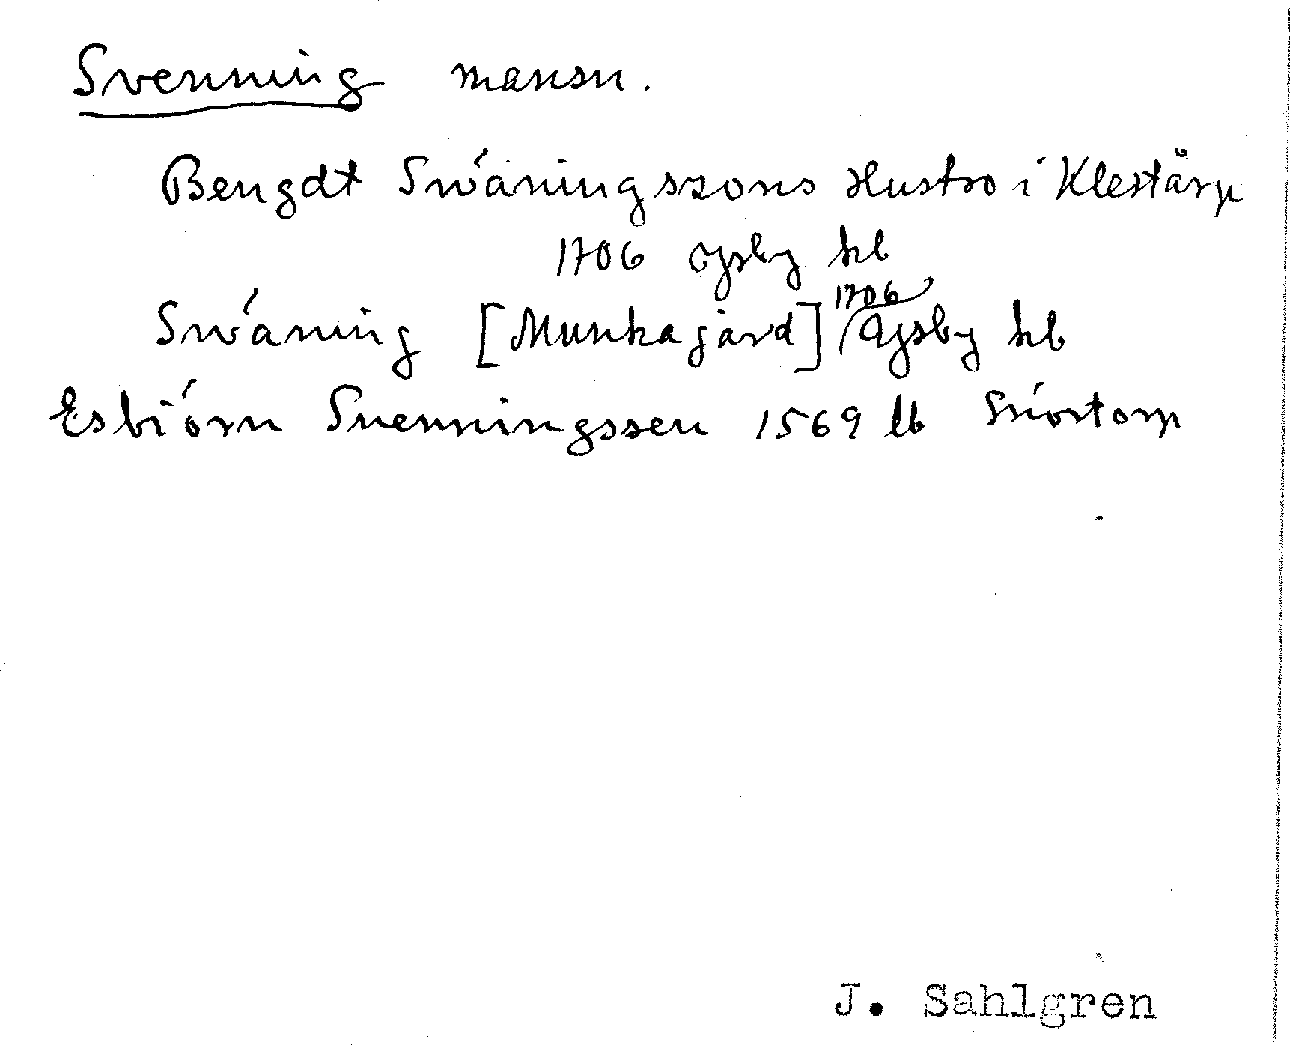 Svenning mansn.
Bengdt Swáningszons Hustro i Klestärp
1706 Ysby kb
Swáning [Munkagård] 1706 Ysby kb
Esbiórn Suenningssen 1569 lb Snóstorp
J. Sahlgren